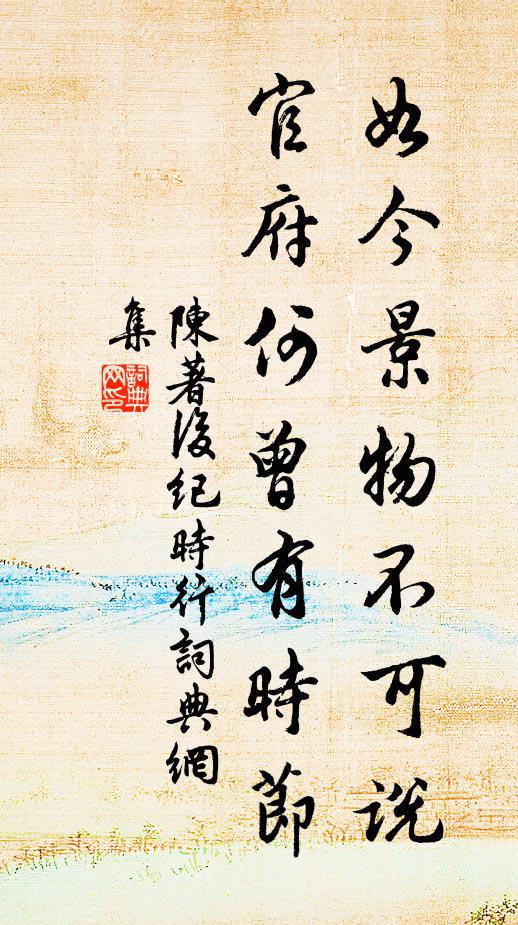 如今景物不可說
官府何曾有時節
陳著後紀時行詞典網
集
詞典
网印